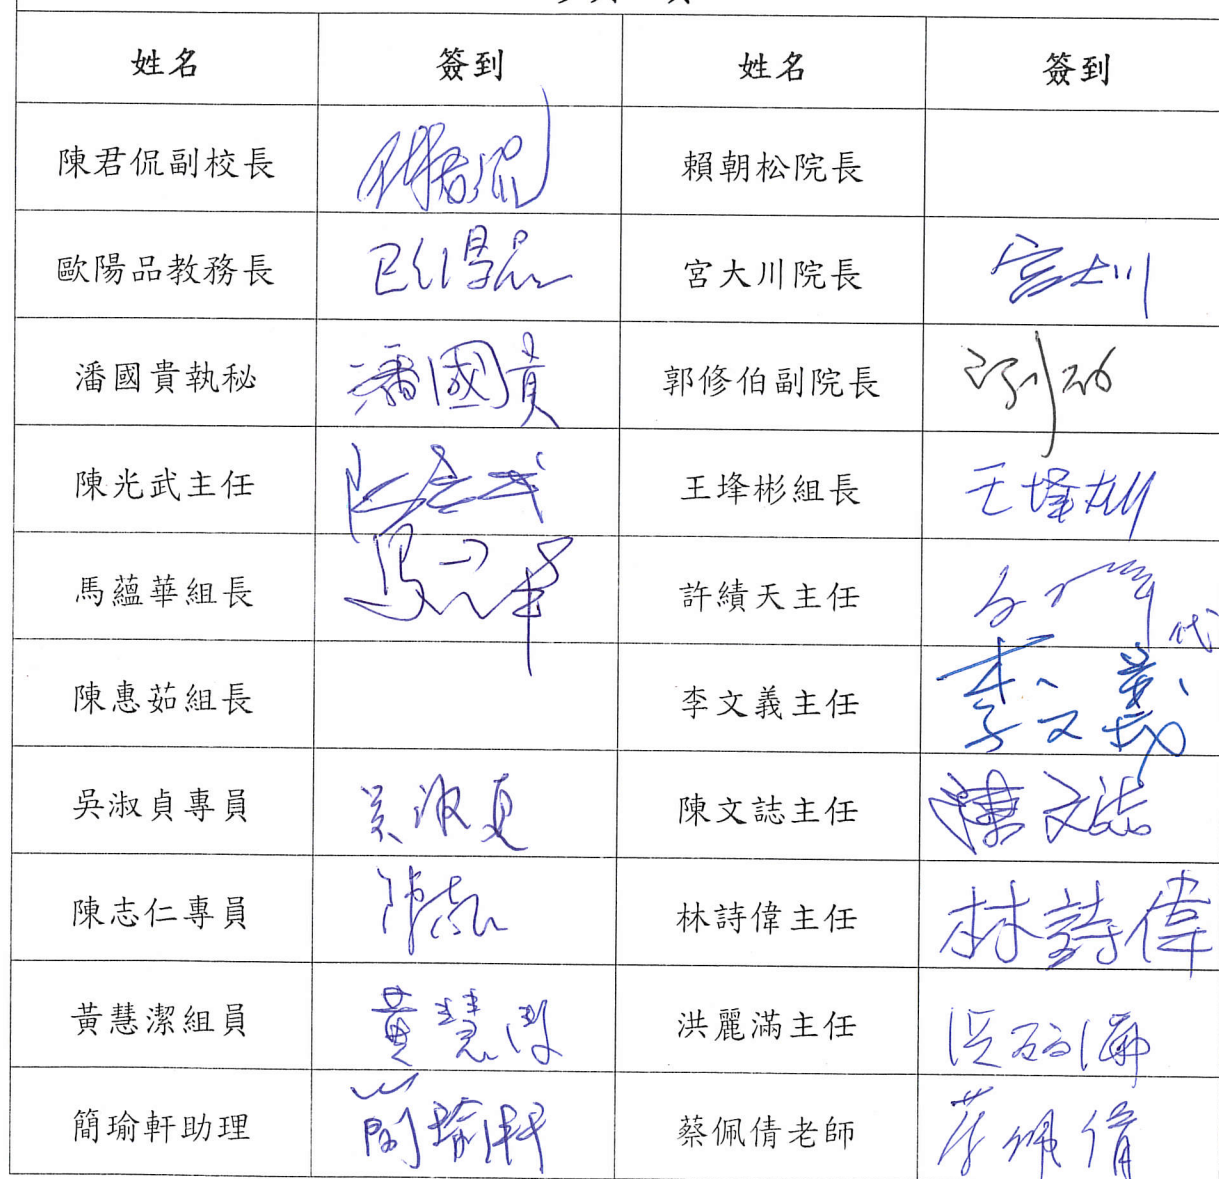 姓名 簽到 姓名 簽到
陳君侃副校長 陳君侃 賴朝松院長
歐陽品教務長 歐陽品 宮大川院長 宮大川
潘國貴執秘 潘國貴 郭修伯副院長
陳光武主任 陳光武 王埄彬組長 王埄彬
馬蘊華組長 馬蘊華 許績天主任 代
陳惠茹組長 李文義主任 李文義
吳淑貞專員 吳淑貞 陳文誌主任 陳文誌
陳志仁專員 陳志仁 林詩偉主任 林詩偉
黃慧潔組員 黃慧潔 洪麗滿主任 洪麗滿
簡瑜軒助理 簡瑜軒 蔡佩倩老師 蔡佩倩